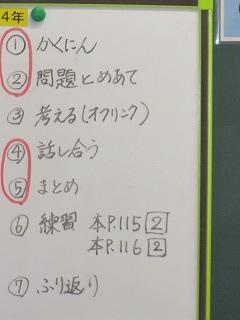 4年
① かくにん
② 問題とめあて
③ 考える(オフリンク)
④ 話し合う
⑤ まとめ
⑥ 練習 本P.115 2
本P.116 2
⑦ ふり返り